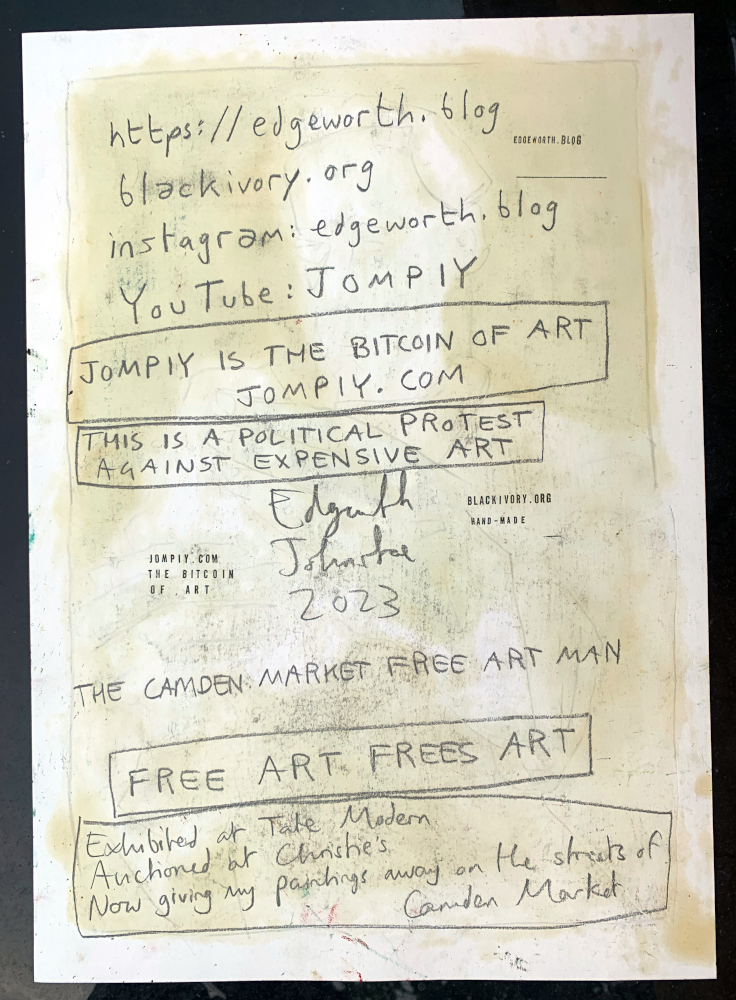 https://edgeworth.blog
EDGEWORTH.BLOG
blackivory.org
instagram: edgeworth.blog
YouTube: JOMPIY
JOMPIY IS THE BITCOIN OF ART
JOMPIY.COM
THIS IS A POLITICAL PROTEST
AGAINST EXPENSIVE ART
Edgeworth
BLACKIVORY.ORG
HAND-MADE
Johnstone
JOMPIY.COM
THE BITCOIN
OF ART
2023
THE CAMDEN MARKET FREE ART MAN
FREE ART FREES ART
Exhibited at Tate Modern
Auctioned at Christie's
Now giving my paintings away on the streets of
Camden Market